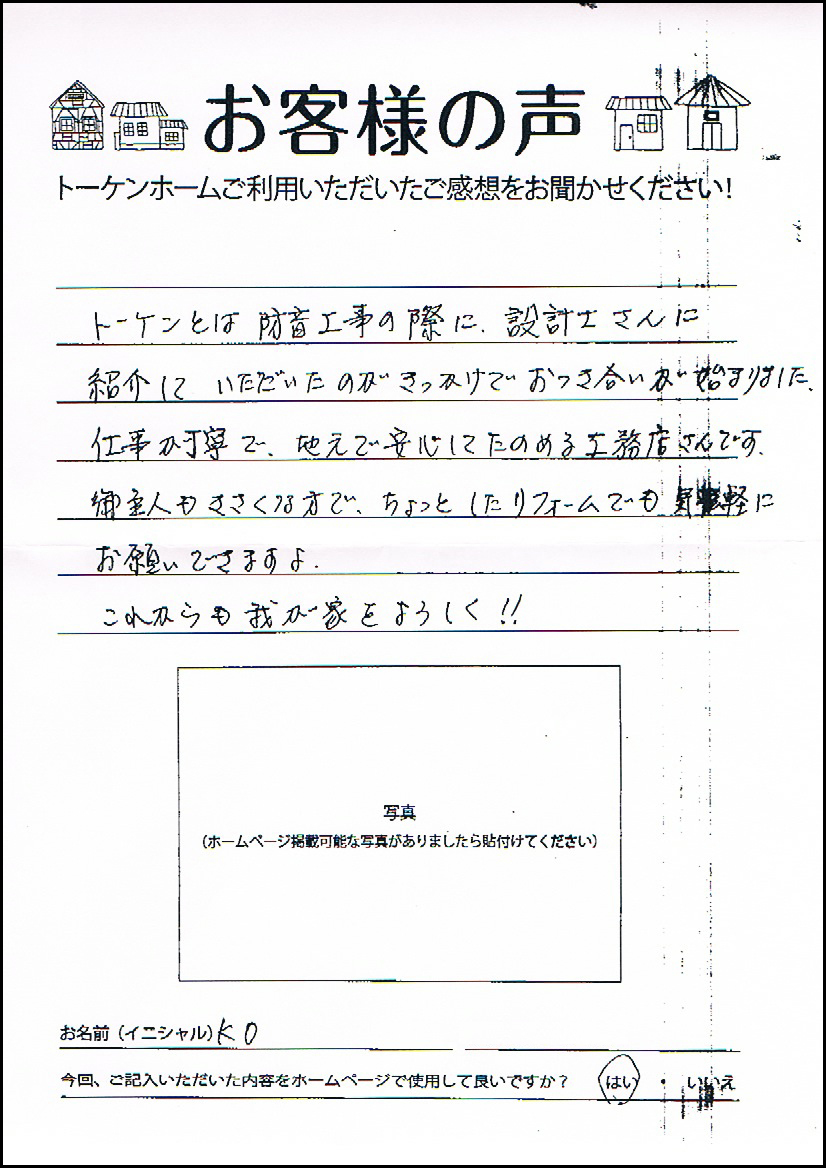 お客様の声
トーケンホームご利用いただいたご感想をお聞かせください!
トーケンとは防音工事の際に、設計士さんに
紹介して いただいたのがきっかけでおつき合いが始まりました。
仕事が丁寧で、地元で安心してたのめる工務店さんです。
御主人もきさくな方で、ちょっとしたリフォームでも 気軽に
お願いできますよ。
これからも我が家をよろしく!!
写真
(ホームページ掲載可能な写真がありましたら貼付けてください)
お名前(イニシャル) K O
今回、ご記入いただいた内容をホームページで使用して良いですか? はい ・ いいえ